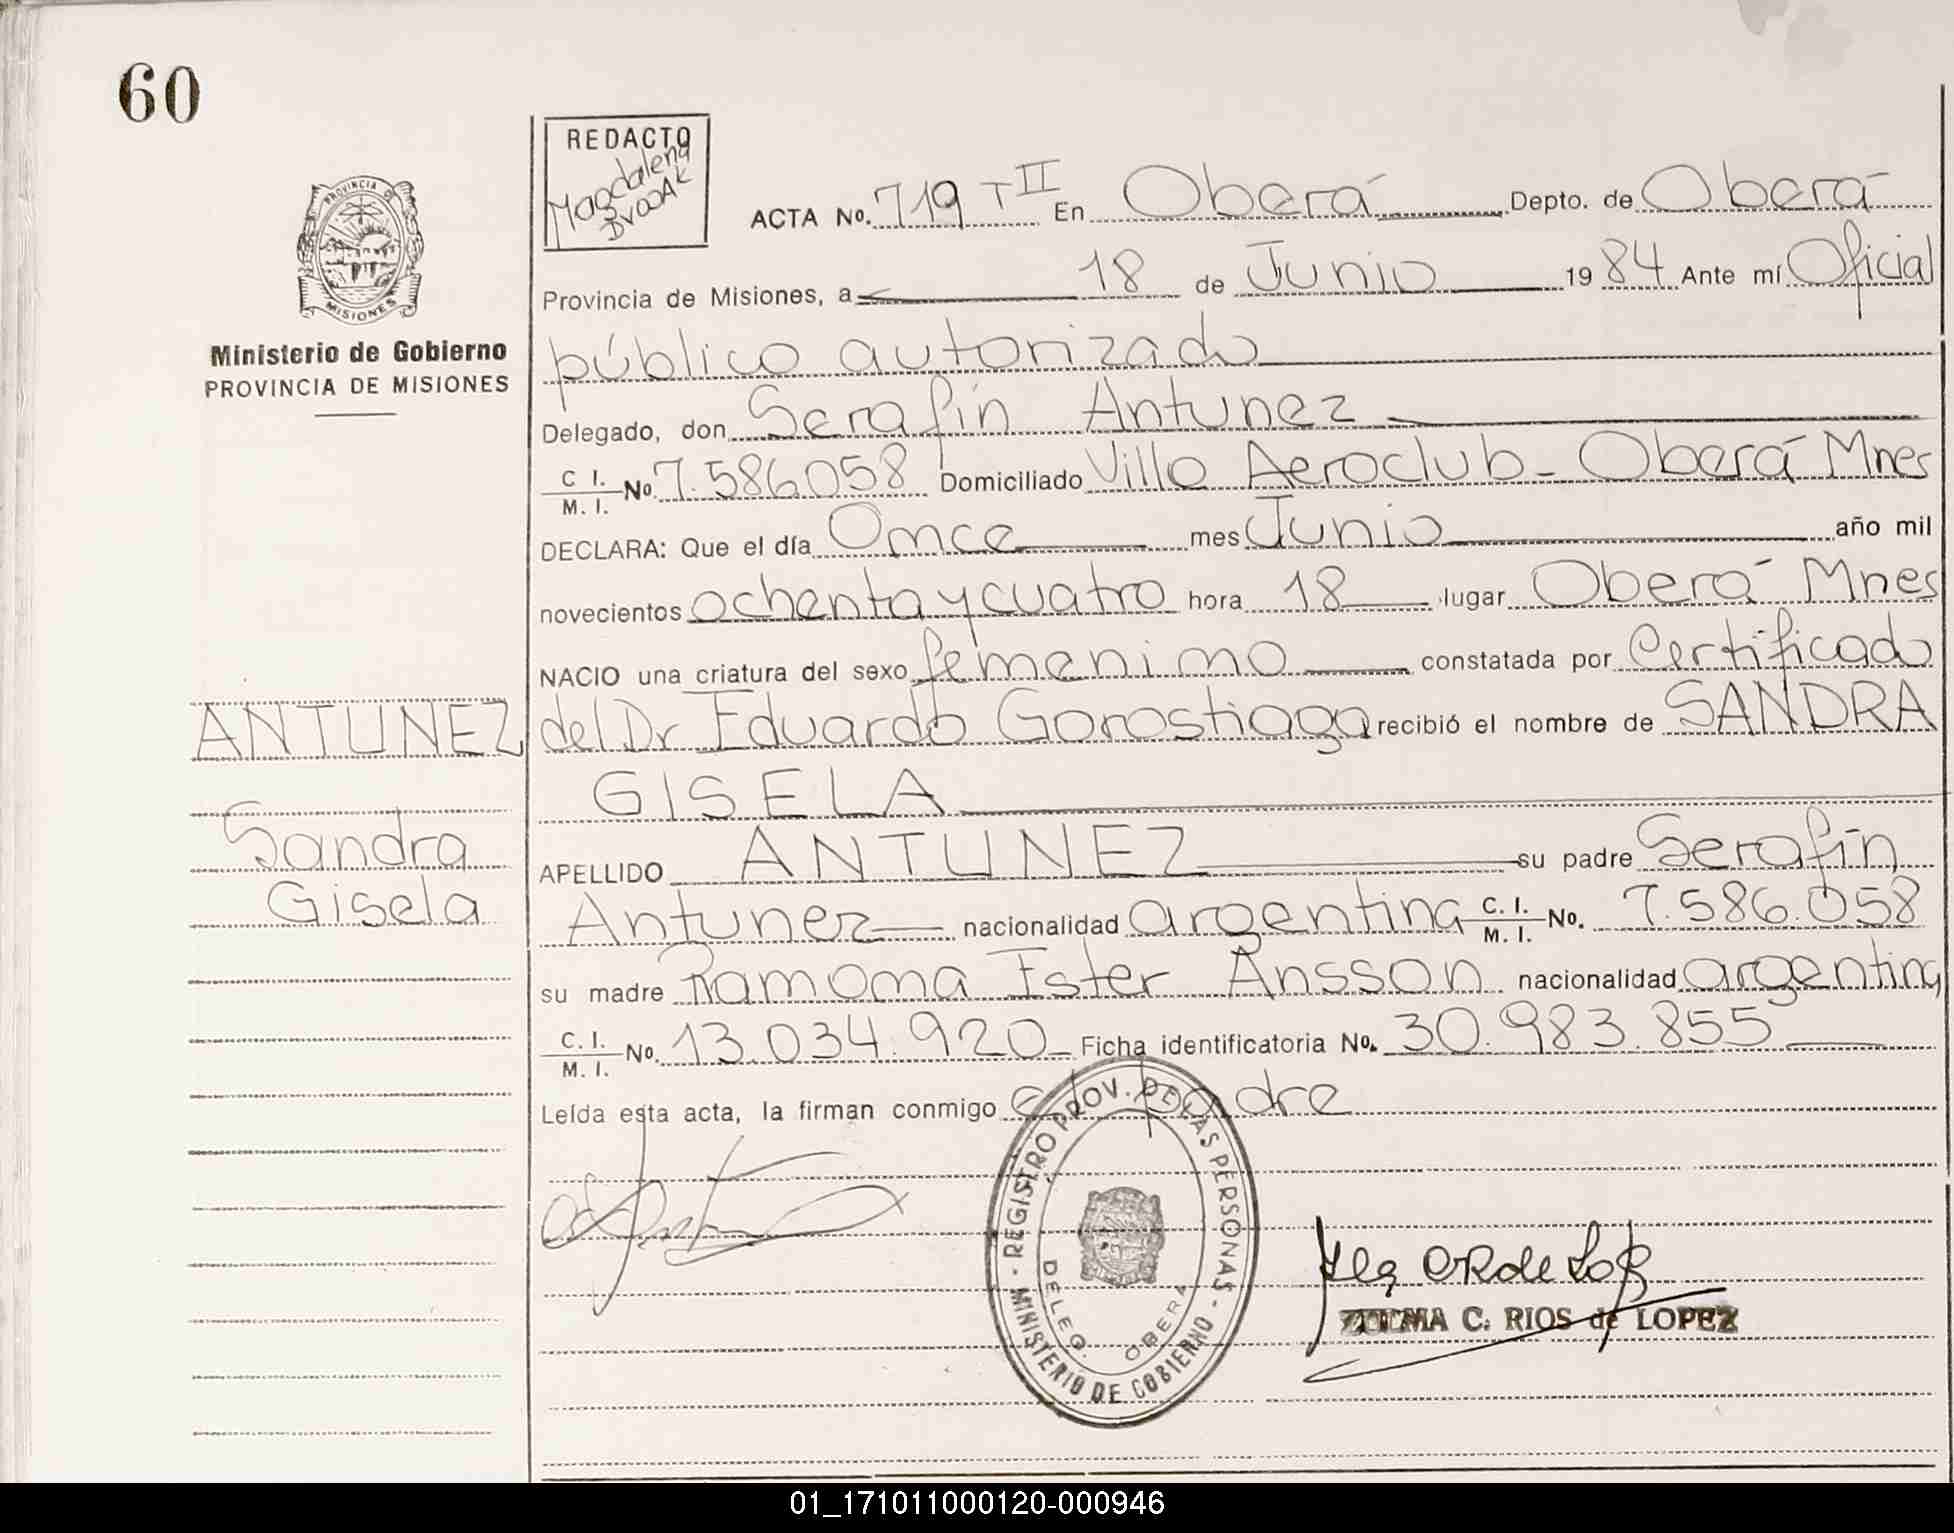 60
REDACTO
Magdalena
DVOOAK
PROVINCIA DE
MISIONES
Ministerio de Gobierno
PROVINCIA DE MISIONES
ACTA No. 719 T II En Oberá Depto. de Oberá
Provincia de Misiones, a 18 de Junio 1984 Ante mí Oficial
público autorizado
Delegado, don Serafín Antunez
C. I. / M. I. No. 7.586058 Domiciliado Villa Aeroclub - Oberá Mnes
DECLARA: Que el día Once mes Junio año mil
novecientos ochenta y cuatro hora 18 lugar Oberá Mnes
NACIO una criatura del sexo femenino constatada por Certificado
del Dr Eduardo Gorostiaga recibió el nombre de SANDRA
GISELA
APELLIDO ANTUNEZ su padre Serafín
Antunez nacionalidad argentina C. I. / M. I. No. 7.586.058
su madre Ramona Ester Ansson nacionalidad argentina
C. I. / M. I. No. 13.034.920 Ficha identificatoria No. 30.983.855
Leída esta acta, la firman conmigo el padre
ANTUNEZ
Sandra
Gisela
REGISTRO PROV. DE LAS PERSONAS
MINISTERIO DE GOBIERNO
DELEG. OBERA
ZULMA C. RIOS de LOPEZ
01_171011000120-000946